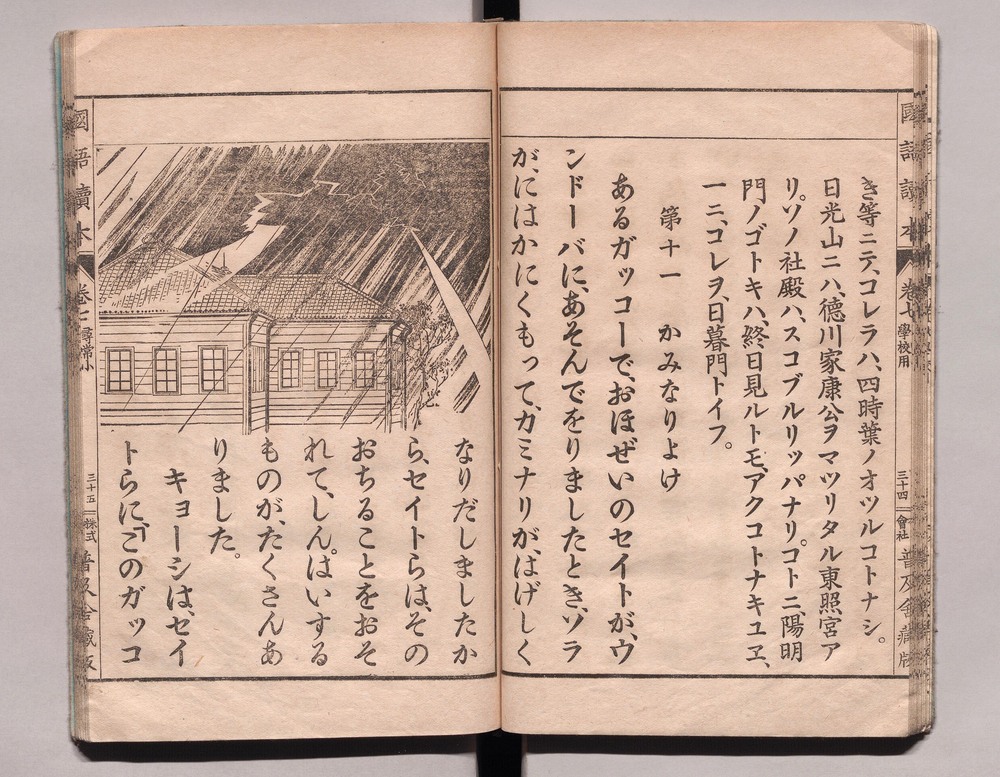 國語讀本
卷七 學校用
三十四
會社 普及舍藏版
き等ニテ、コレラハ、四時葉ノオツルコトナシ。
日光山ニハ、德川家康公ヲマツリタル東照宮ア
リ。ソノ社殿ハ、スコブルリッパナリ。コトニ、陽明
門ノゴトキハ、終日見ルトモ、アクコトナキユヱ、
一ニ、コレヲ、日暮門トイフ。
第十一 かみなりよけ
あるガッコーで、おほぜいのセイトが、ウ
ンドーバに、あそんでをりましたとき、ソラ
が、にはかにくもって、カミナリが、はげしく
なりだしましたか
ら、セイトらは、その
おちることをおそ
れて、しんぱいする
ものが、たくさんあ
りました。
キョーシは、セイ
トらに、「このガッコ
國語讀本
卷七 尋常小
三十五
株式 普及舍藏版